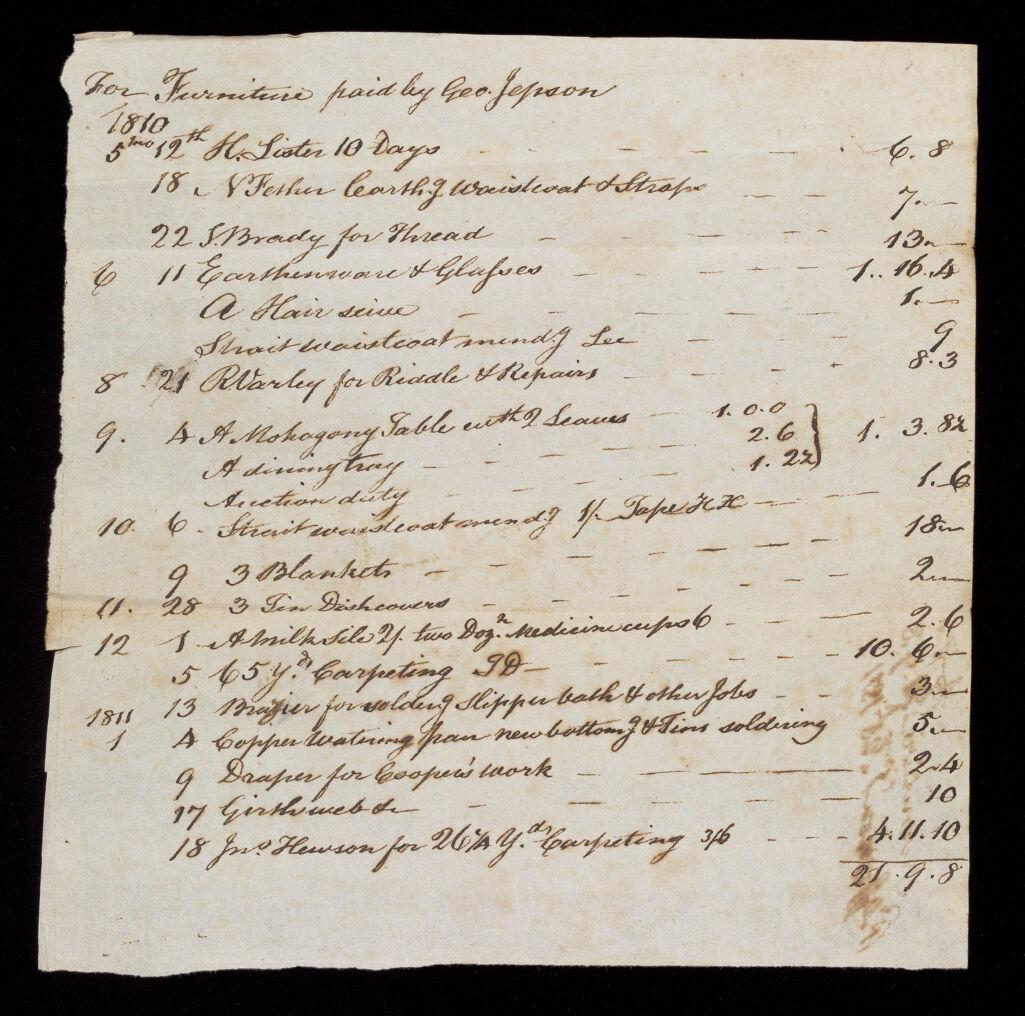 For Furniture paid by Geo. Jepson
1810
5mo 12th H. Lister 10 Days 6. 8
18 N Fether Carthg Waistcoat & Straps 7. -
22 S. Brady for Thread 13 -
6 11 Earthenware & Glasses 1.. 16. 4
A Hair seive 1. -
Strait waistcoat mendg Lee 9
8 21 R Varley for Riddle & Repairs 8. 3
9. 4 A Mohogony Table with 2 Leaves 1. 0. 0
A dining tray 2. 6 } 1. 3. 8½
Auction duty 1. 2½
10. 6 - Strait waistcoat mendg 1/- Tape 1. 6
9 3 Blankets 18 -
11. 28 3 Tin Dishcovers 2 -
12 1 A milk Sile 2/. two Dozn Medicine cups 6 2. 6
5 65 Yds Carpeting 10. 6 -
13 Brazier for solderg Slipper bath & other Jobs 3 -
1811
1 4 Copper Watering pan new bottomg & Tins soldering 5 -
9 Draper for Cooper's work 2. 4
17 Girth web &c 10
18 Jno. Hewson for 26¼ Yds Carpeting 3/6 4. 11. 10
21. 9. 8